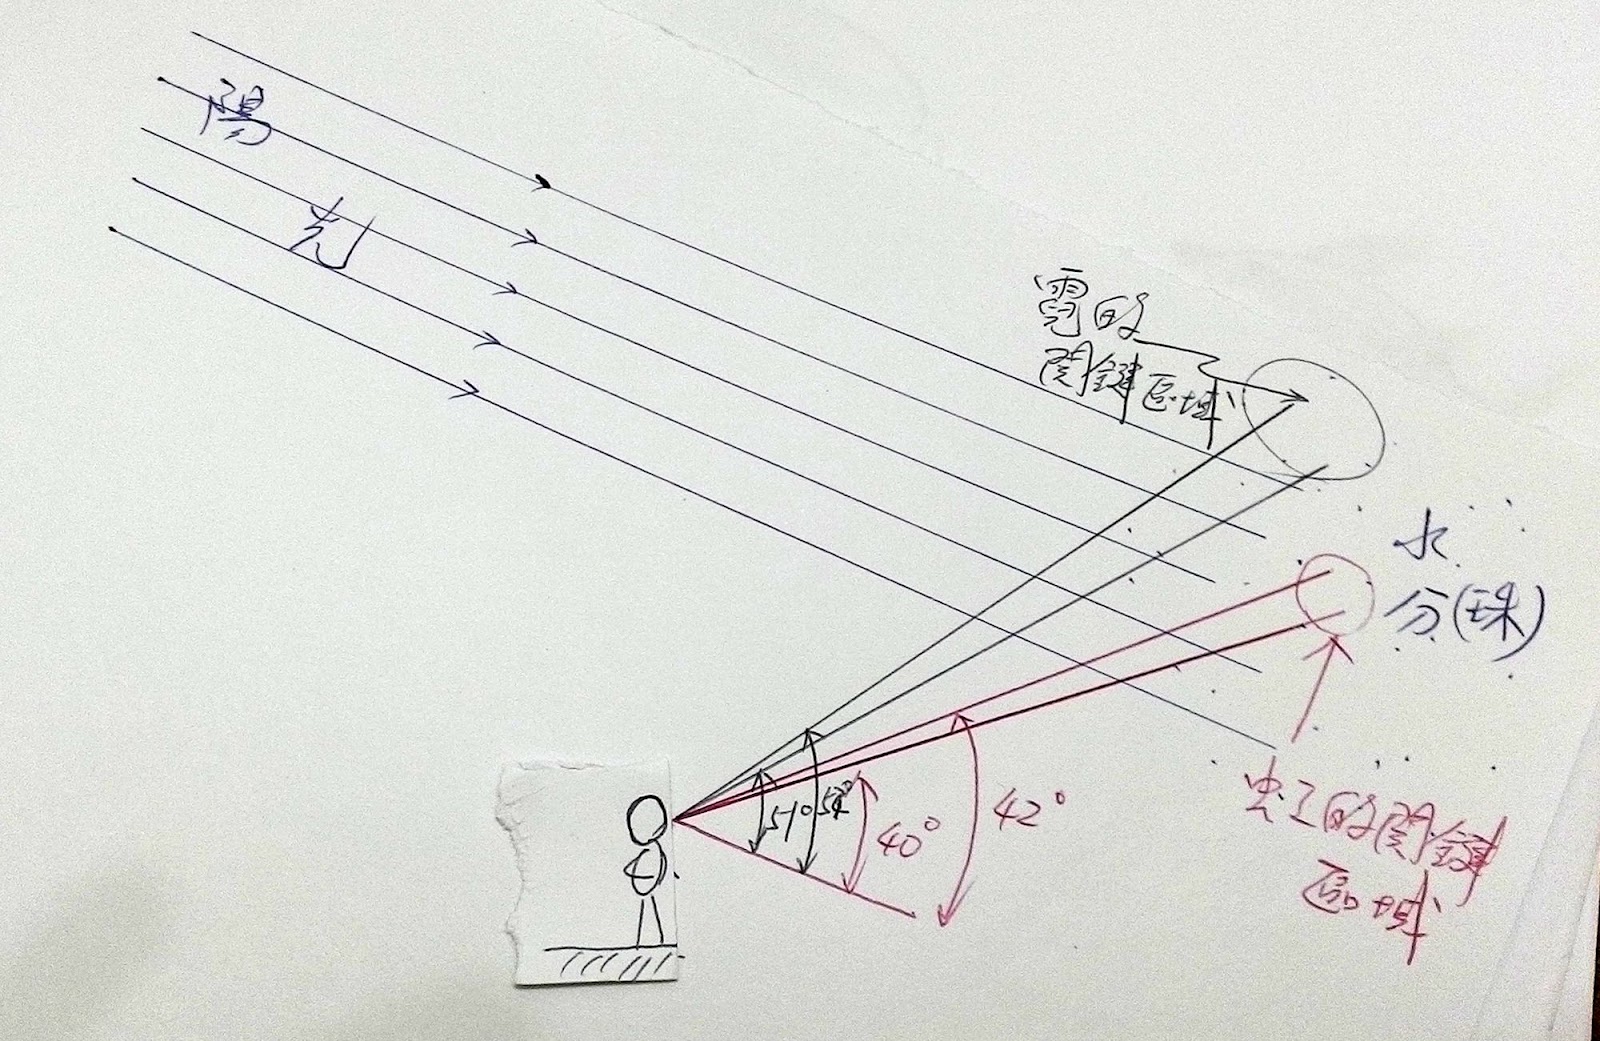 陽
光
霓的
関鍵區域
水
分(珠)
51° 54°
40°
42°
虹的関鍵
區域